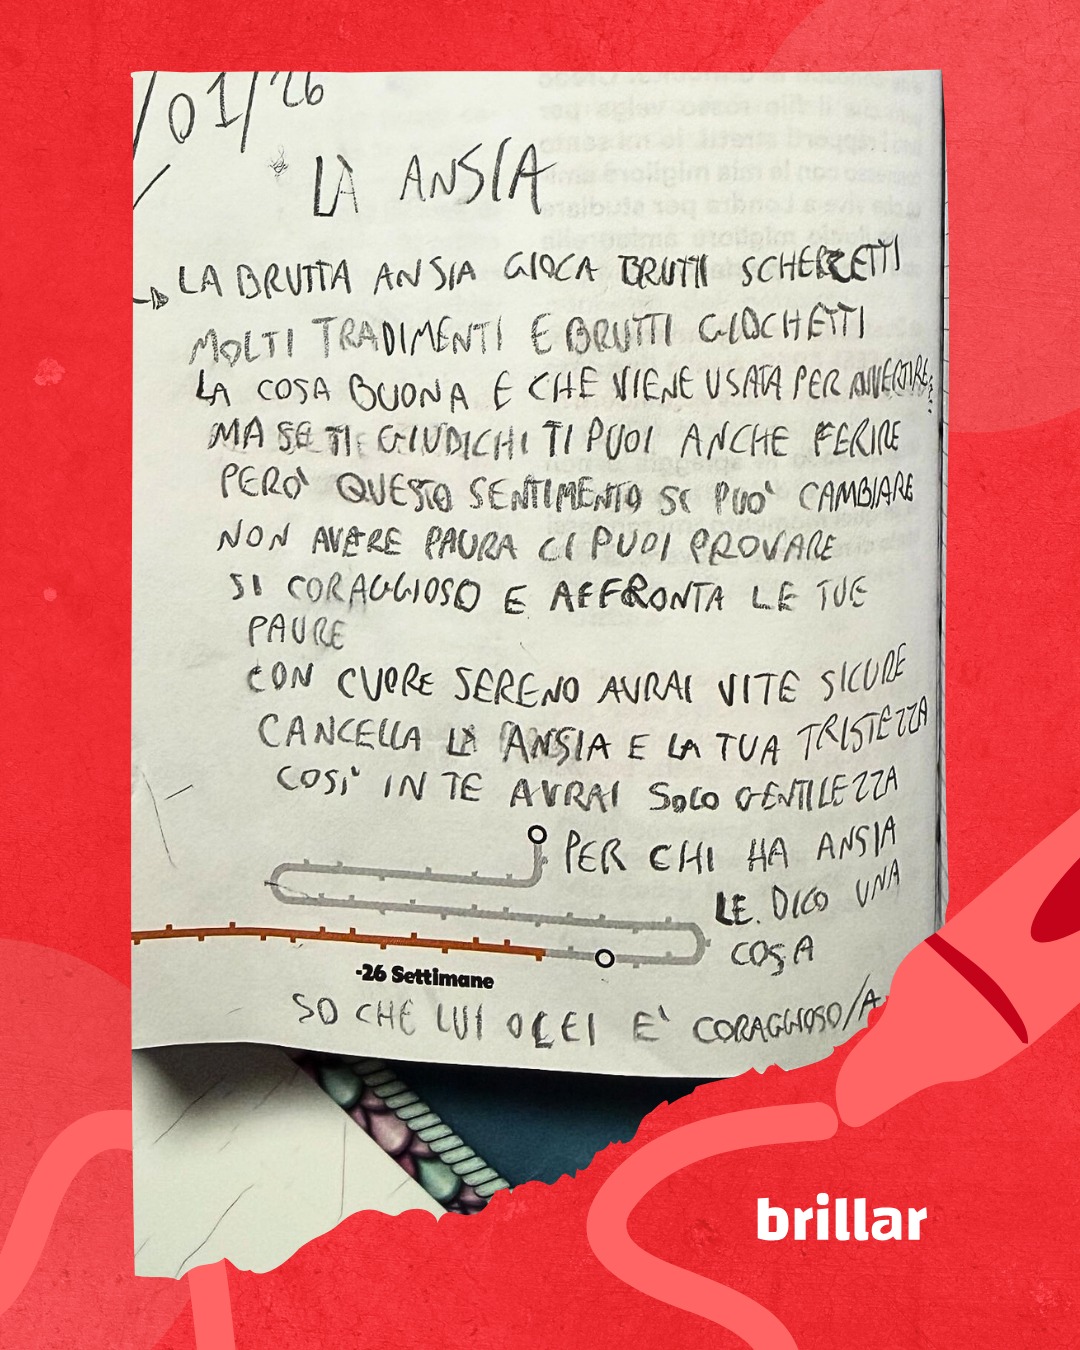 /01/26
LA ANSIA
LA BRUTTA ANSIA GIOCA BRUTTI SCHERZETTI
MOLTI TRADIMENTI E BRUTTI GIOCHETTI
LA COSA BUONA E CHE VIENE USATA PER AVVERTIRE
MA SE TI GIUDICHI TI PUOI ANCHE FERIRE
PERO' QUESTO SENTIMENTO SI PUO' CAMBIARE
NON AVERE PAURA CI PUOI PROVARE
SI CORAGGIOSO E AFFRONTA LE TUE
PAURE
CON CUORE SERENO AVRAI VITE SICURE
CANCELLA LA ANSIA E LA TUA TRISTEZZA
COSI' IN TE AVRAI SOLO GENTILEZZA
PER CHI HA ANSIA
LE DICO UNA
COSA
-26 Settimane
SO CHE LUI O LEI E' CORAGGIOSO/A
brillar